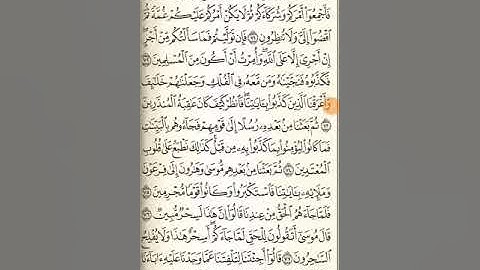 فَأَجْمِعُوٓا۟ أَمْرَكُمْ وَشُرَكَآءَكُمْ ثُمَّ لَا يَكُنْ أَمْرُكُمْ عَلَيْكُمْ غُمَّةً ثُمَّ
ٱقْضُوٓا۟ إِلَىَّ وَلَا تُنظِرُونِ ٧١ فَإِن تَوَلَّيْتُمْ فَمَا سَأَلْتُكُم مِّنْ أَجْرٍ
إِنْ أَجْرِىَ إِلَّا عَلَى ٱللَّهِ وَأُمِرْتُ أَنْ أَكُونَ مِنَ ٱلْمُسْلِمِينَ ٧٢
فَكَذَّبُوهُ فَنَجَّيْنَٰهُ وَمَن مَّعَهُۥ فِى ٱلْفُلْكِ وَجَعَلْنَٰهُمْ خَلَٰٓئِفَ
وَأَغْرَقْنَا ٱلَّذِينَ كَذَّبُوا۟ بِـَٔايَٰتِنَا فَٱنظُرْ كَيْفَ كَانَ عَٰقِبَةُ ٱلْمُنذَرِينَ
٧٣ ثُمَّ بَعَثْنَا مِنۢ بَعْدِهِۦ رُسُلًا إِلَىٰ قَوْمِهِمْ فَجَآءُوهُم بِٱلْبَيِّنَٰتِ
فَمَا كَانُوا۟ لِيُؤْمِنُوا۟ بِمَا كَذَّبُوا۟ بِهِۦ مِن قَبْلُ كَذَٰلِكَ نَطْبَعُ عَلَىٰ قُلُوبِ
ٱلْمُعْتَدِينَ ٧٤ ثُمَّ بَعَثْنَا مِنۢ بَعْدِهِم مُّوسَىٰ وَهَٰرُونَ إِلَىٰ فِرْعَوْنَ
وَمَلَإِي۟هِۦ بِـَٔايَٰتِنَا فَٱسْتَكْبَرُوا۟ وَكَانُوا۟ قَوْمًا مُّجْرِمِينَ ٧٥
فَلَمَّا جَآءَهُمُ ٱلْحَقُّ مِنْ عِندِنَا قَالُوٓا۟ إِنَّ هَٰذَا لَسِحْرٌ مُّبِينٌ ٧٦
قَالَ مُوسَىٰٓ أَتَقُولُونَ لِلْحَقِّ لَمَّا جَآءَكُمْ أَسِحْرٌ هَٰذَا وَلَا يُفْلِحُ
ٱلسَّٰحِرُونَ ٧٧ قَالُوٓا۟ أَجِئْتَنَا لِتَلْفِتَنَا عَمَّا وَجَدْنَا عَلَيْهِ ءَابَآءَنَا